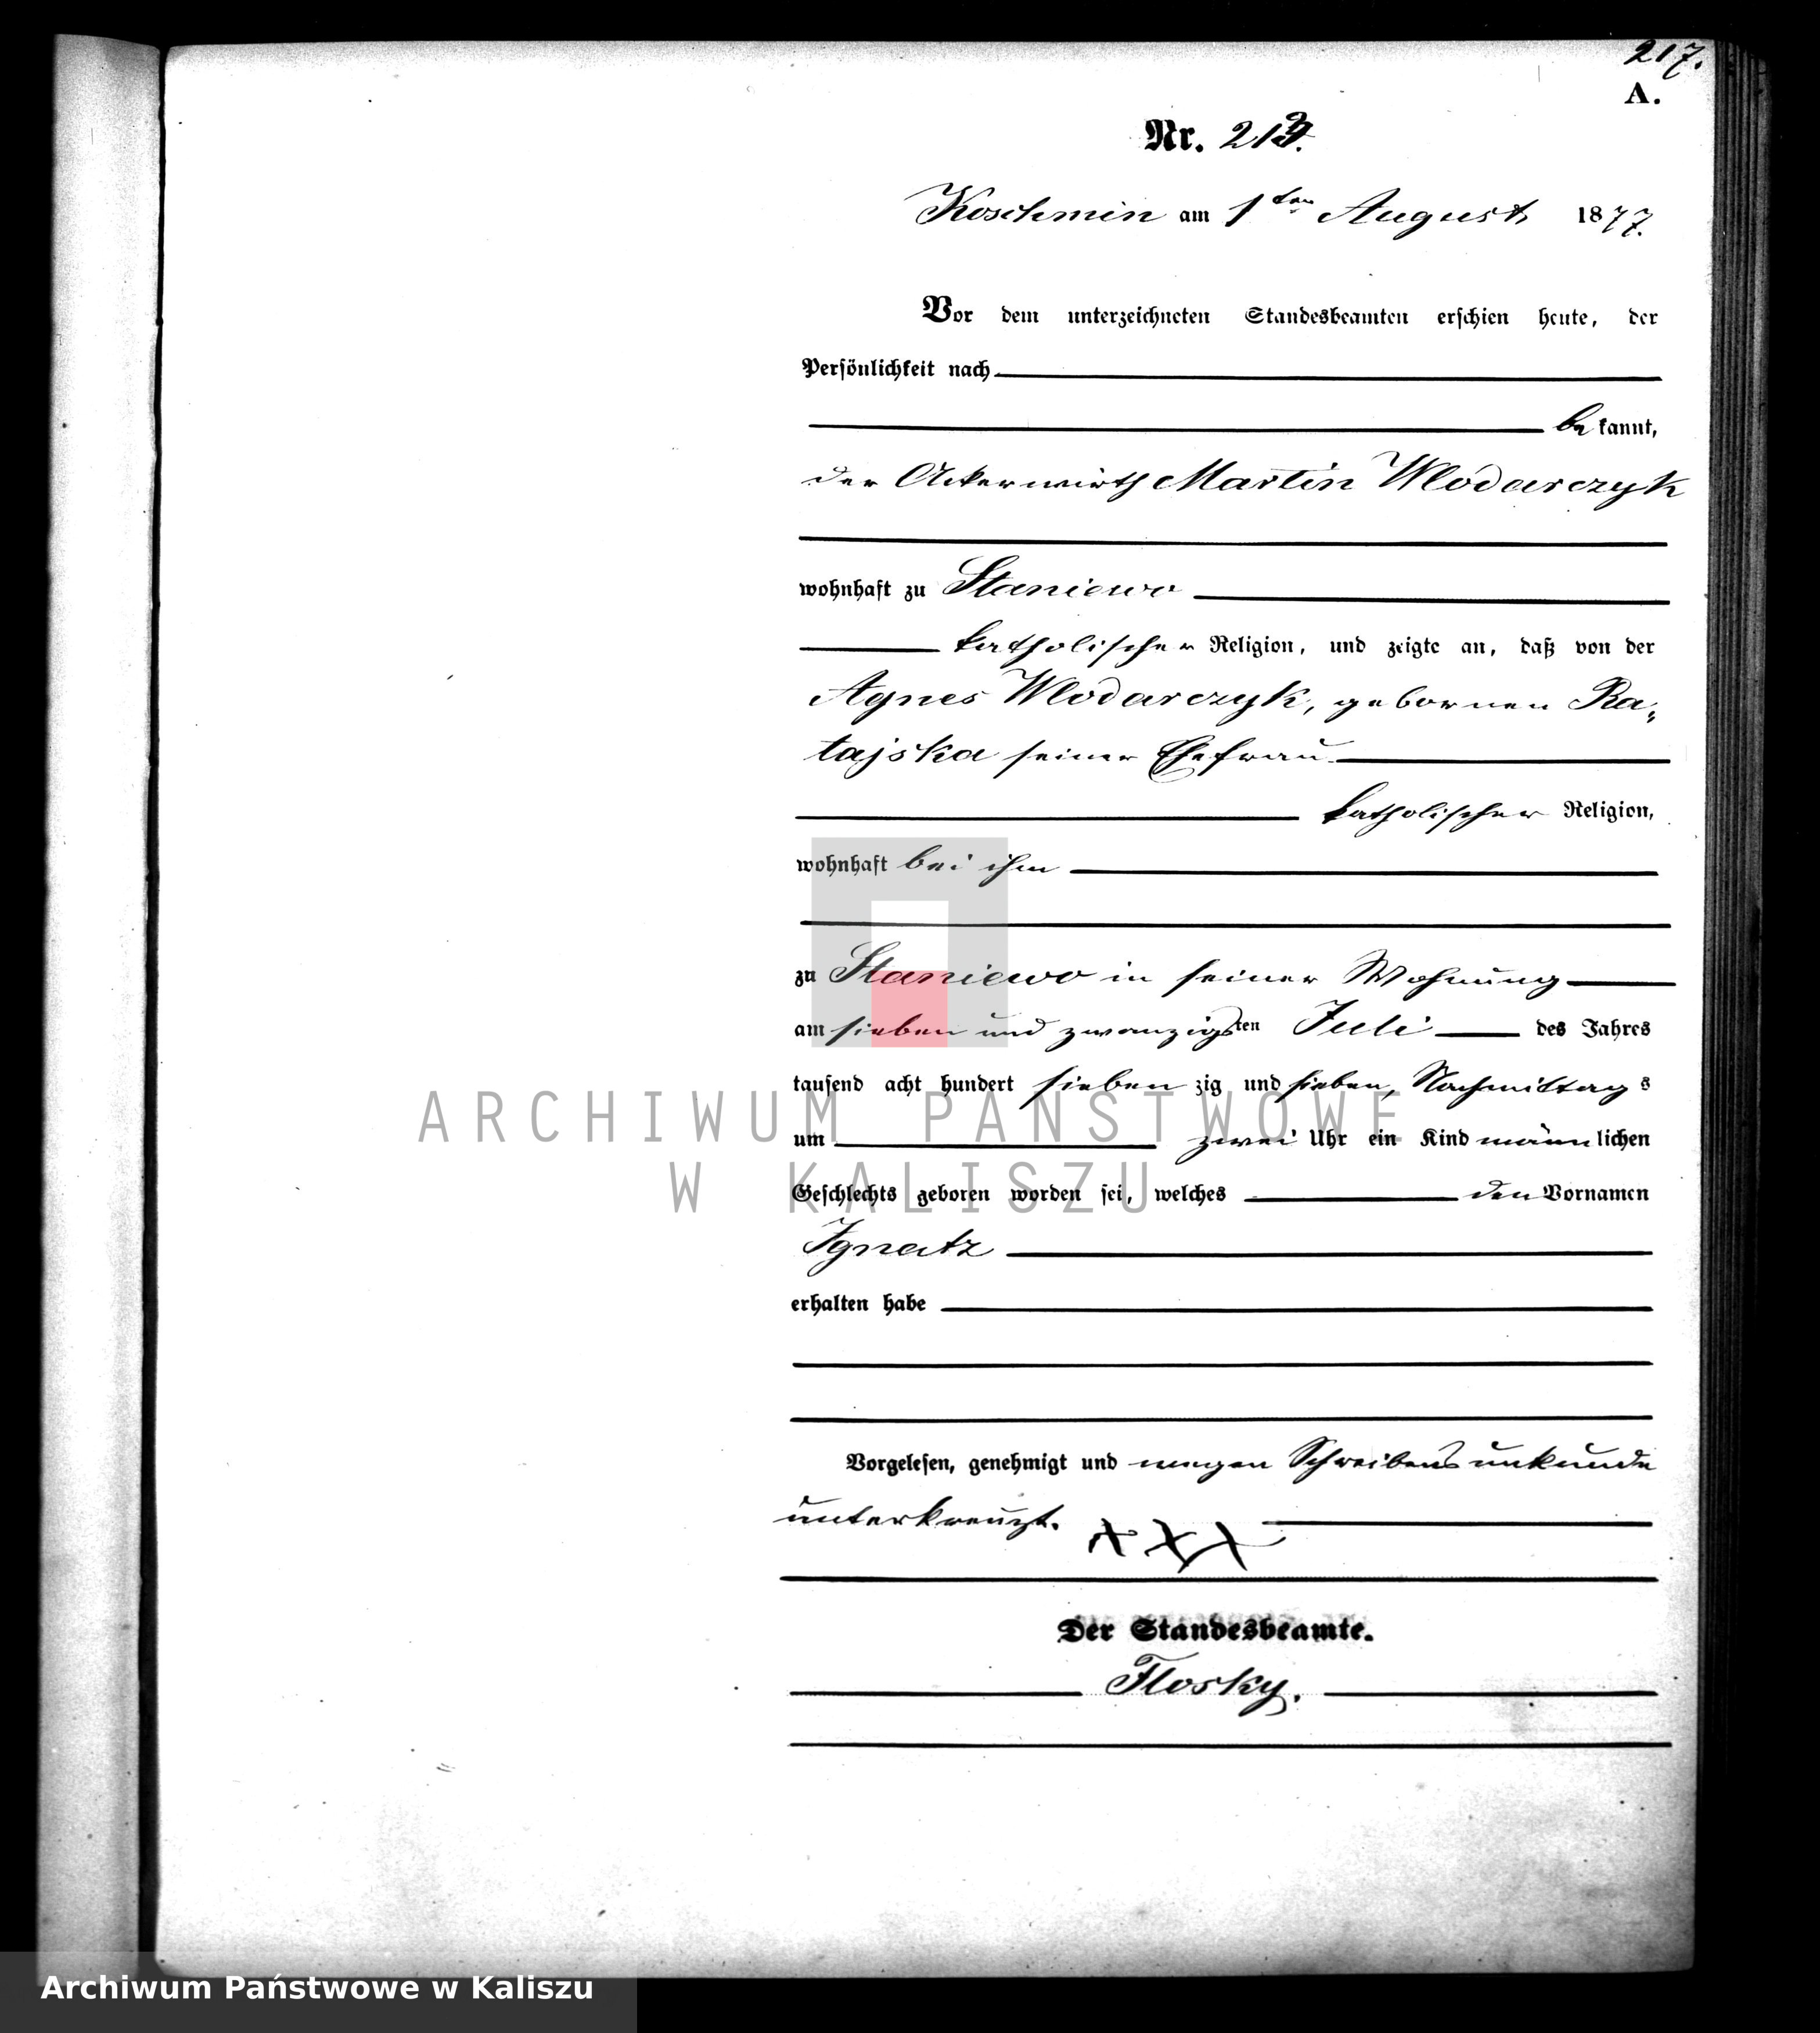 217.
A.
Nr. 213.
Koschmin am 1ten August 1877.
Vor dem unterzeichneten Standesbeamten erschien heute, der
Persönlichkeit nach
bekannt,
der Ackerwirth Martin Wlodarczyk
wohnhaft zu Staniewo
katholischer Religion, und zeigte an, daß von der
Agnes Wlodarczyk, gebornen Ra-
tajska seiner Ehefrau
katholischer Religion,
wohnhaft bei ihm
zu Staniewo in seiner Wohnung
am sieben und zwanzigsten Juli des Jahres
tausend acht hundert siebenzig und sieben, Nachmittags
um zwei Uhr ein Kind männlichen
Geschlechts geboren worden sei, welches den Vornamen
Ignatz
erhalten habe
Vorgelesen, genehmigt und wegen Schreibensunkunde
unterkreuzt. XXX
Der Standesbeamte.
Flosky.
ARCHIWUM PAŃSTWOWE
W KALISZU
Archiwum Państwowe w Kaliszu